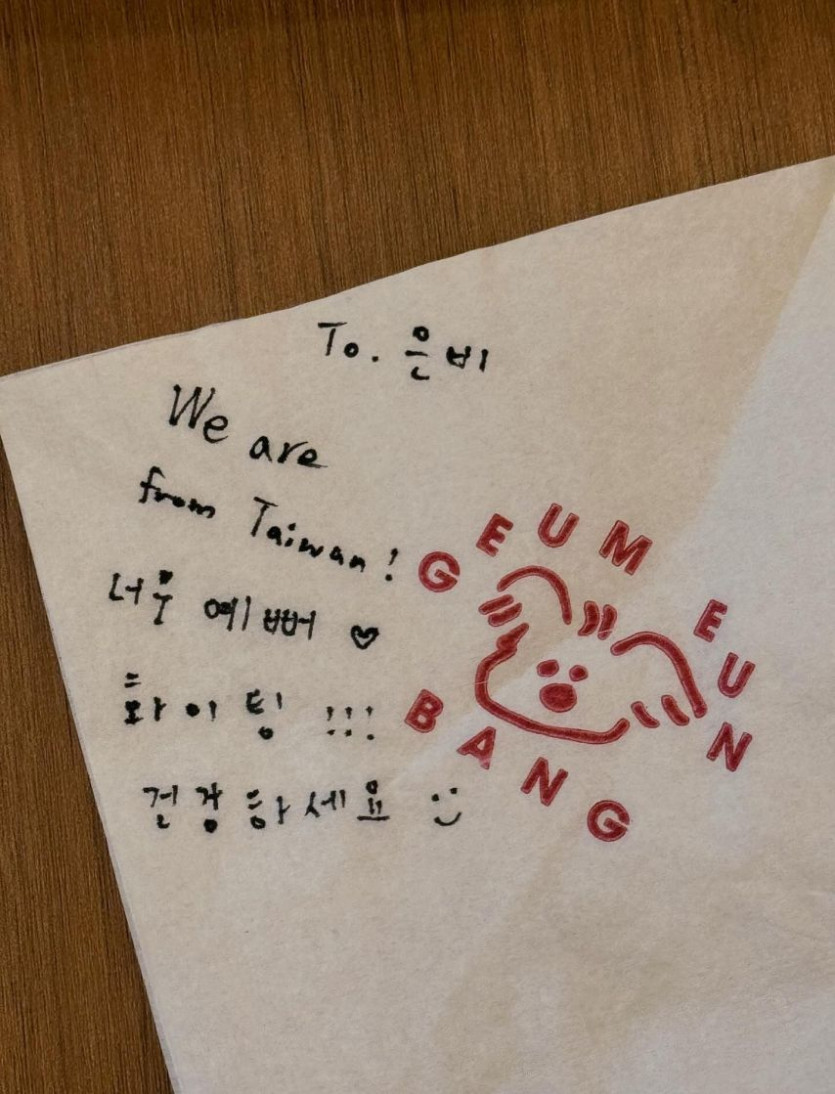 To. 은비
We are
from Taiwan!
너무 예뻐 ♡
화이팅 !!!
건강하세요 :)
GEUM EUN
BANG